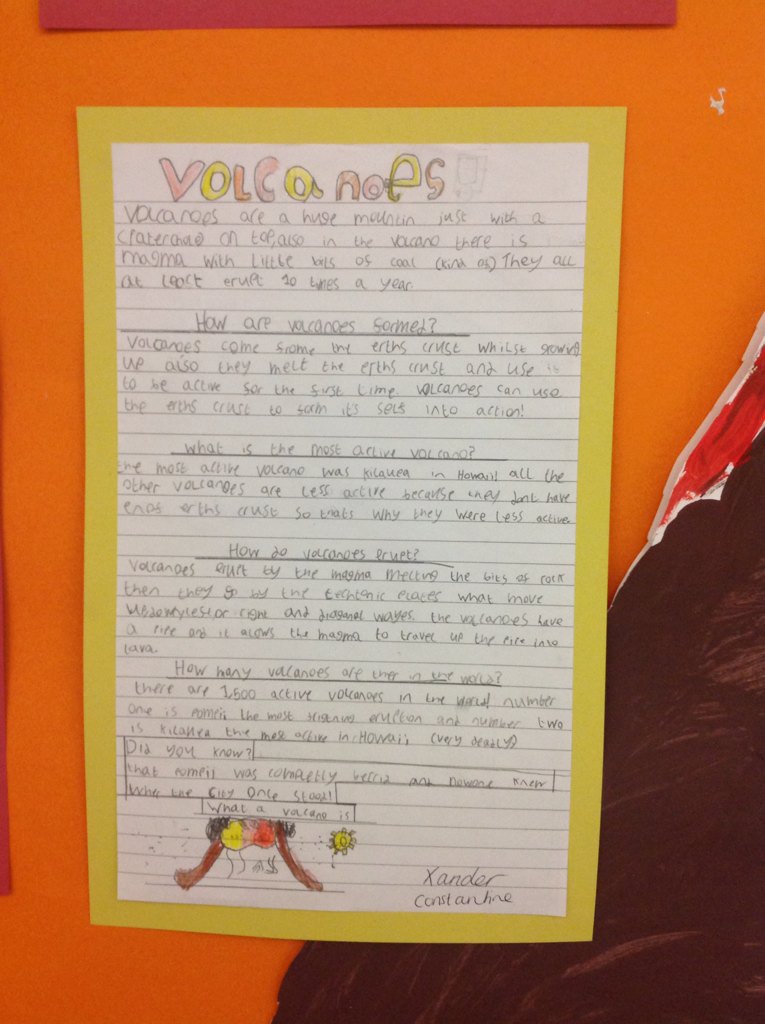 VOLCanoes
Volcanoes are a huge mountin just with a
on top, also in the volcano there is
magma with little bits of coal (kind of) They all
at least erupt 10 times a year
How are volcanoes formed?
Volcanoes come frome the erths crust whilst growing
up also they melt the erths crust and use it
to be active for the first time. Volcanoes can use
the erths crust to form it's self into action!
What is the most active volcano?
the most active volcano was kilauea in Howaii all the
other volcanoes are less active because they dont have
erths crust so thats why they were less active.
How do volcanoes erupt?
Volcanoes erupt by the magma melting the bits of rock
then they go by the techtonic plates what move
or right and diaganal wayes. the volcanoes have
a pipe and it alows the magma to travel up the pipe into
lava.
How many volcanoes are ther in the world?
there are 1,500 active volcanoes in the world! number
one is the most eruption and number two
is kilauea the most active in Howaii, (very deadly)
Did you know?
that was completly and nowone knew
the city once stood!
What a volcano is
Xander
Constantine